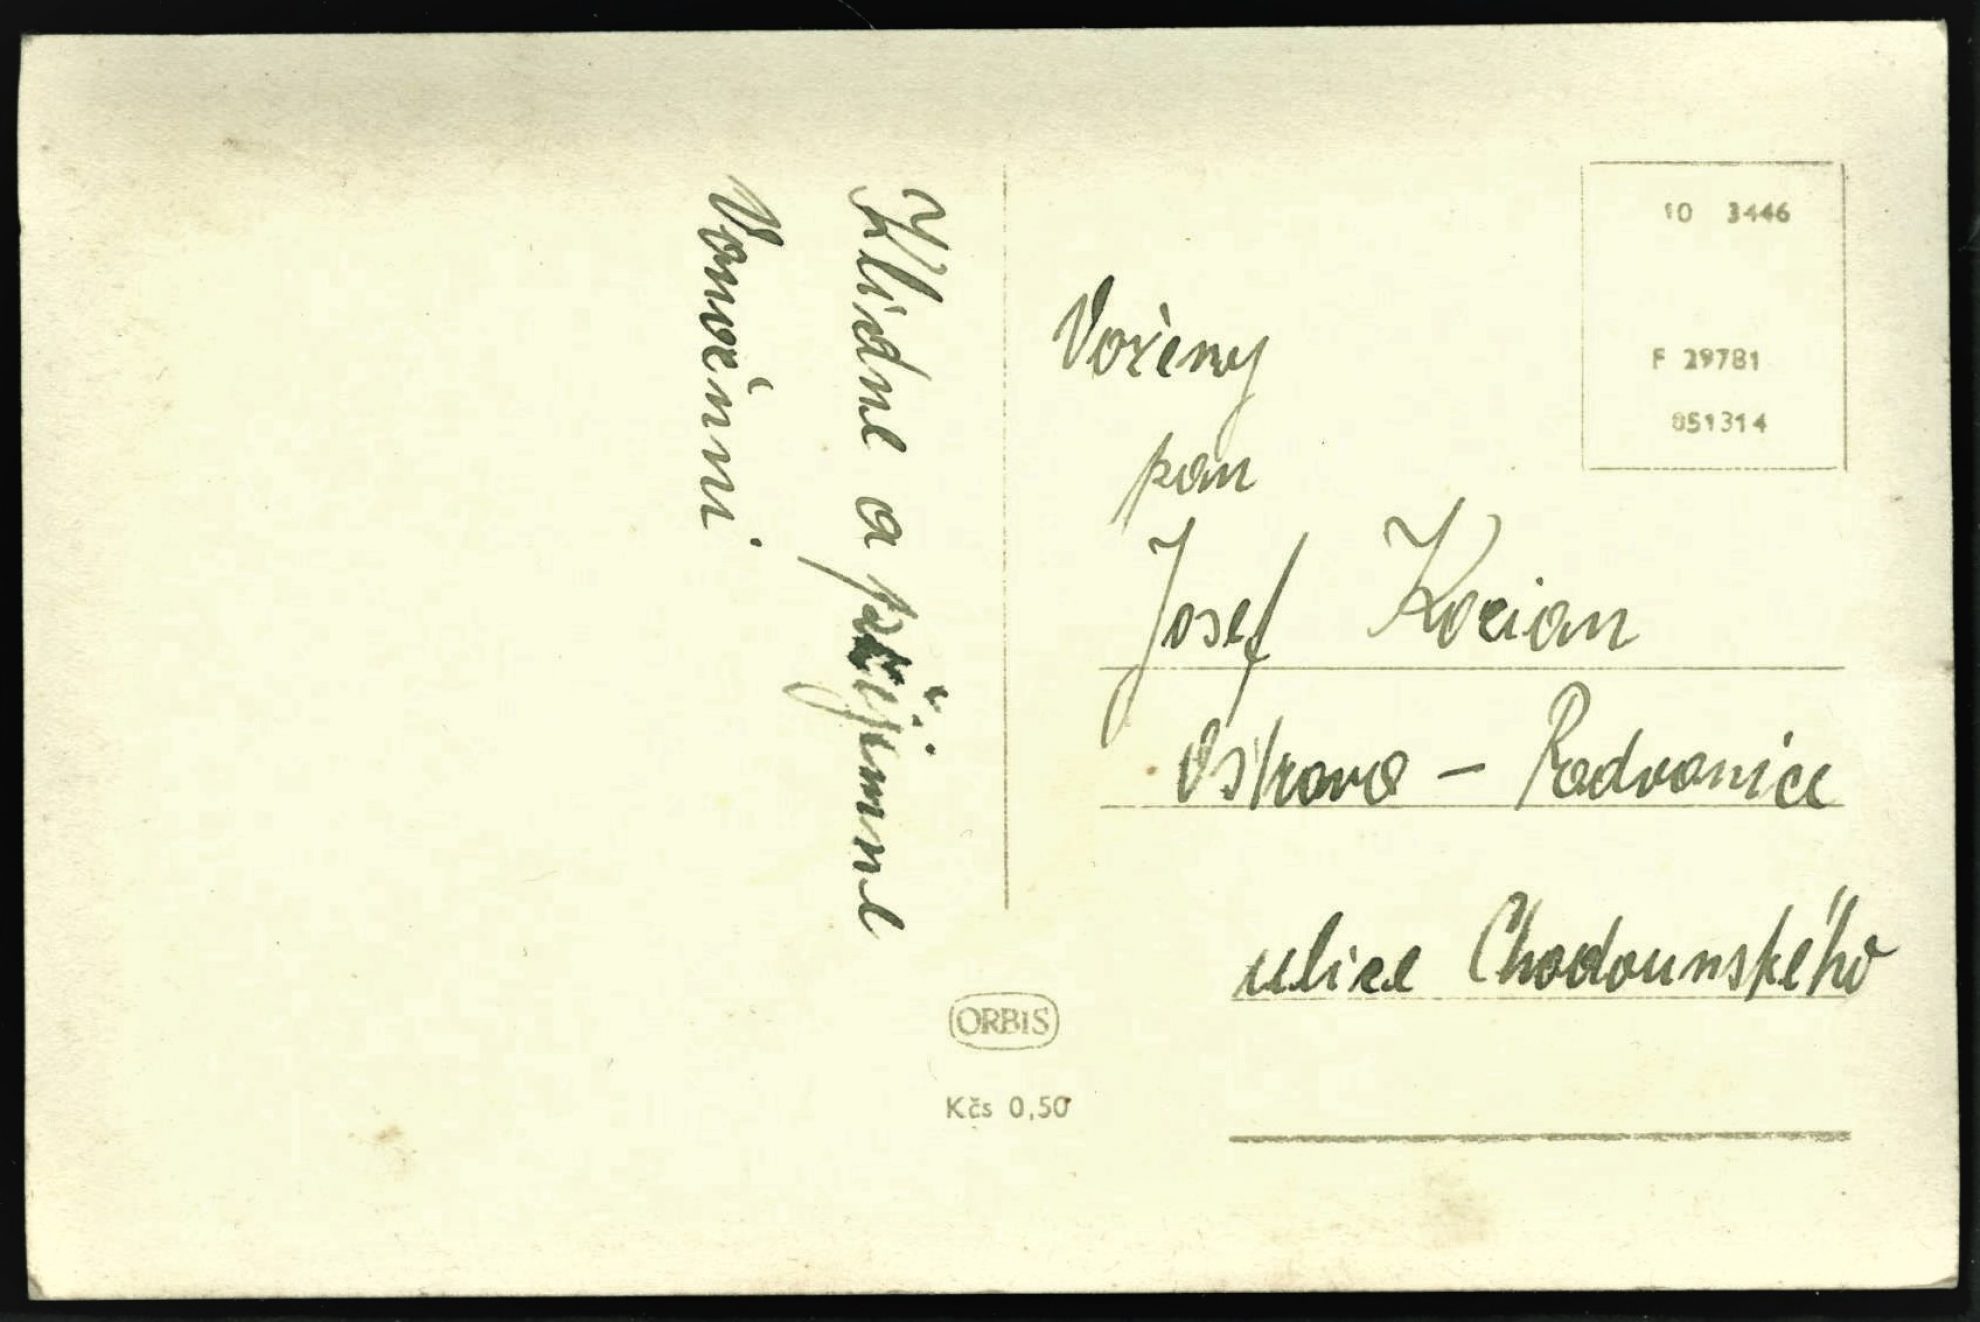 Klidné a příjemné
Vánoční
Vážený
pan
Josef Kocian
Ostrava - Radvanice
ulice Chodounského
10 3446
F 29781
051314
ORBIS
Kčs 0,50